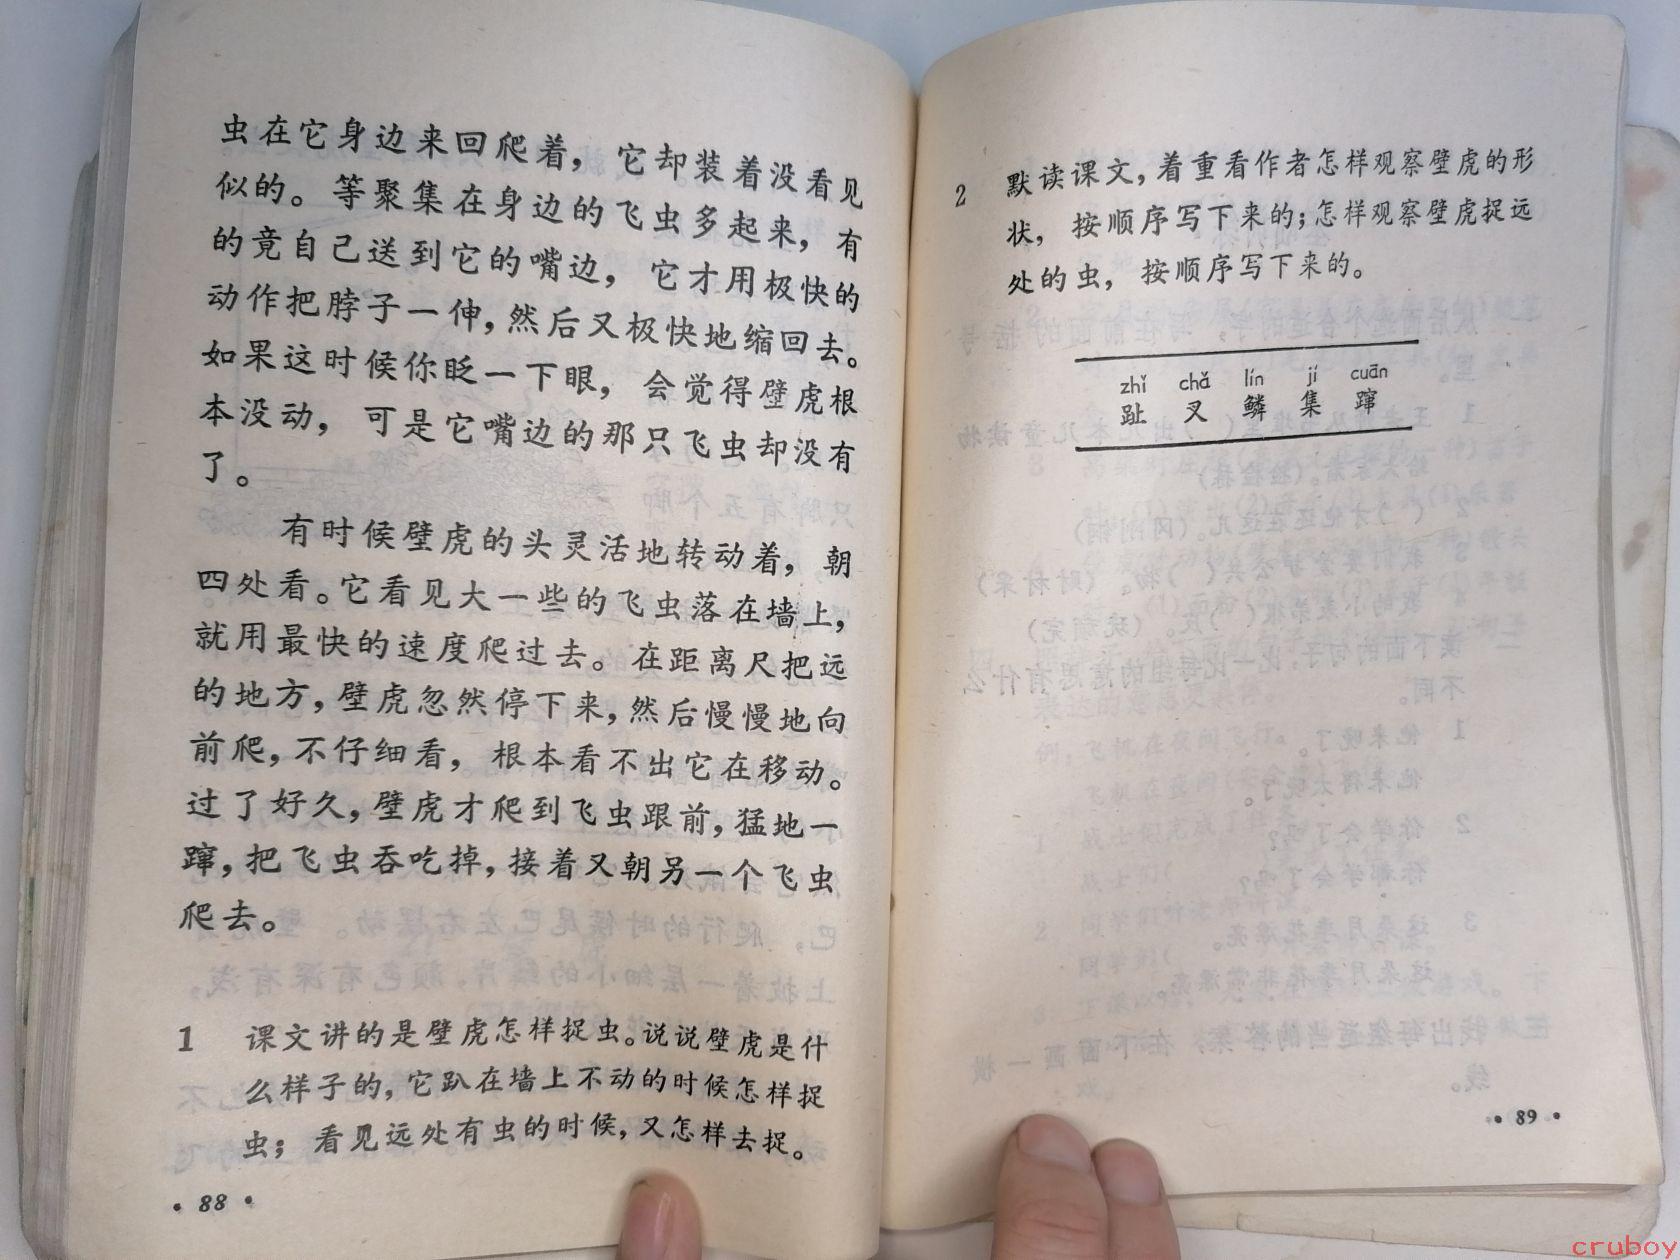 虫在它身边来回爬着，它却装着没看见
似的。等聚集在身边的飞虫多起来，有
的竟自己送到它的嘴边，它才用极快的
动作把脖子一伸，然后又极快地缩回去。
如果这时候你眨一下眼，会觉得壁虎根
本没动，可是它嘴边的那只飞虫却没有
了。
有时候壁虎的头灵活地转动着，朝
四处看。它看见大一些的飞虫落在墙上，
就用最快的速度爬过去。在距离尺把远
的地方，壁虎忽然停下来，然后慢慢地向
前爬，不仔细看，根本看不出它在移动。
过了好久，壁虎才爬到飞虫跟前，猛地一
蹿，把飞虫吞吃掉，接着又朝另一个飞虫
爬去。
1 课文讲的是壁虎怎样捉虫。说说壁虎是什
么样子的，它趴在墙上不动的时候怎样捉
虫；看见远处有虫的时候，又怎样去捉。
·88·
2 默读课文，着重看作者怎样观察壁虎的形
状，按顺序写下来的；怎样观察壁虎捉远
处的虫，按顺序写下来的。
zhǐ chǎ lín jí cuān
趾 叉 鳞 集 蹿
·89·
cruboy